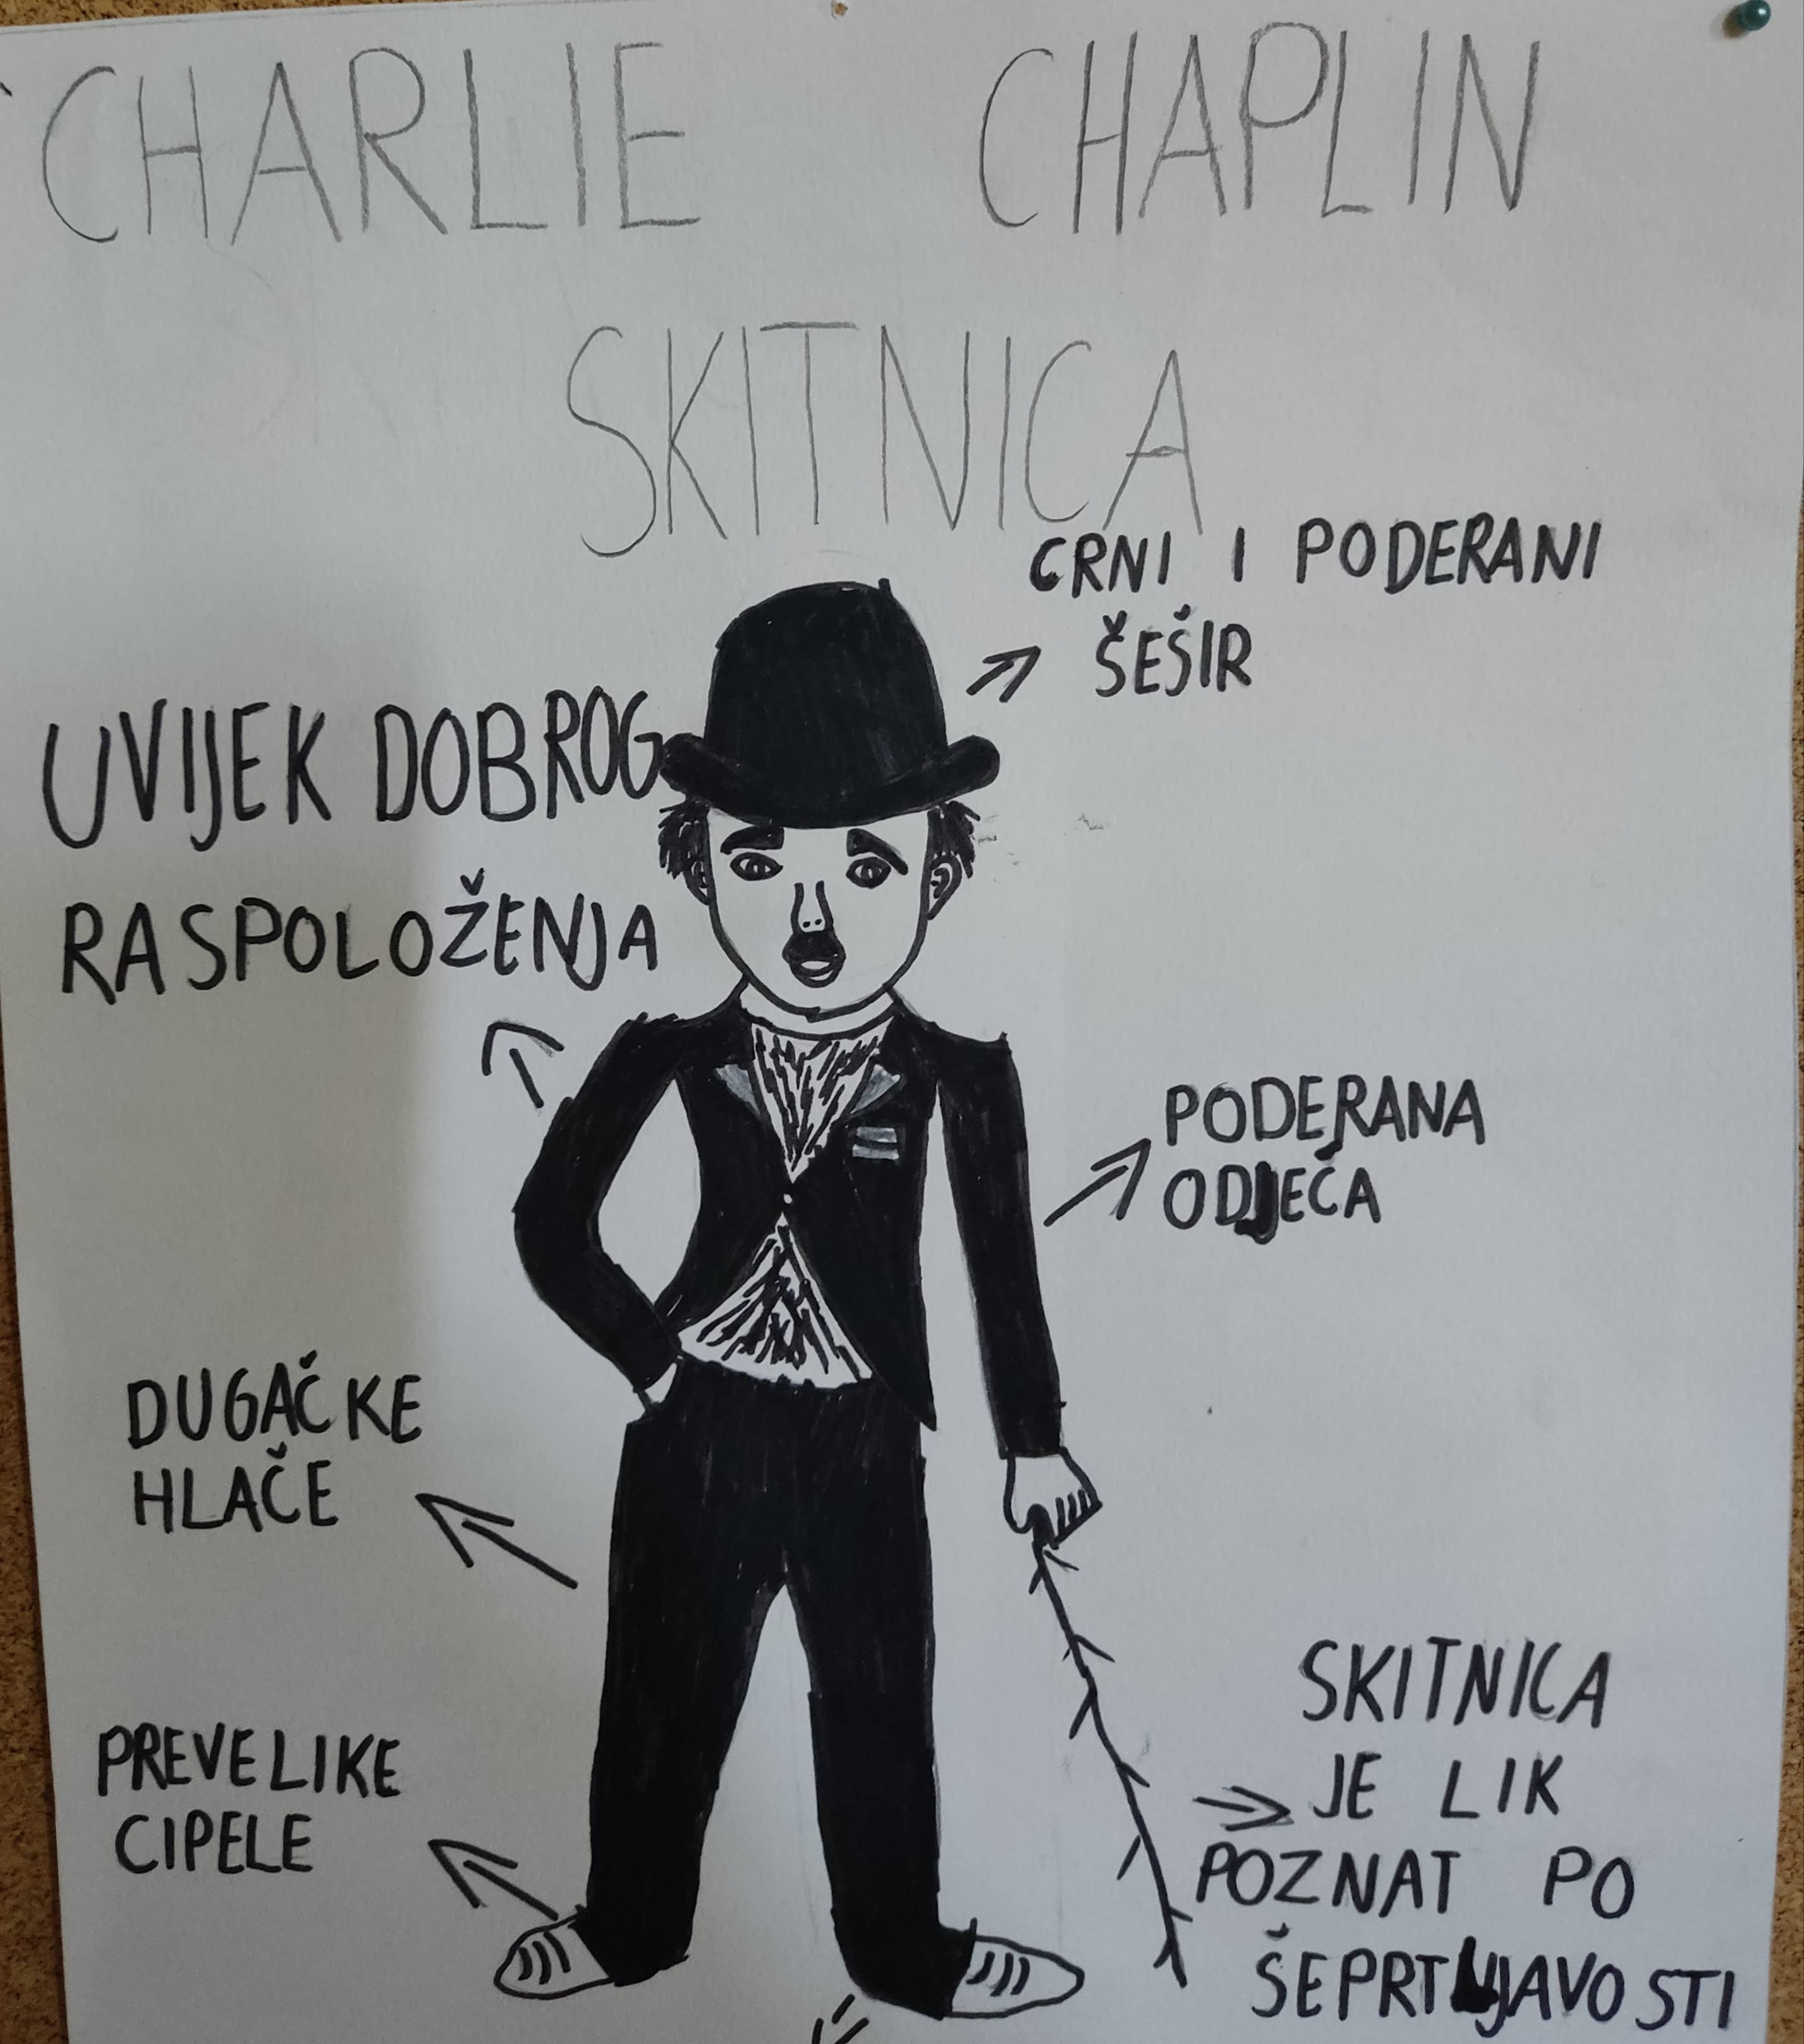 CHARLIE CHAPLIN
SKITNICA
CRNI I PODERANI
ŠEŠIR
UVIJEK DOBROG
RASPOLOŽENJA
PODERANA
ODJEĆA
DUGAČKE
HLAČE
PREVELIKE
CIPELE
SKITNICA
JE LIK
POZNAT PO
ŠEPRTLJAVOSTI